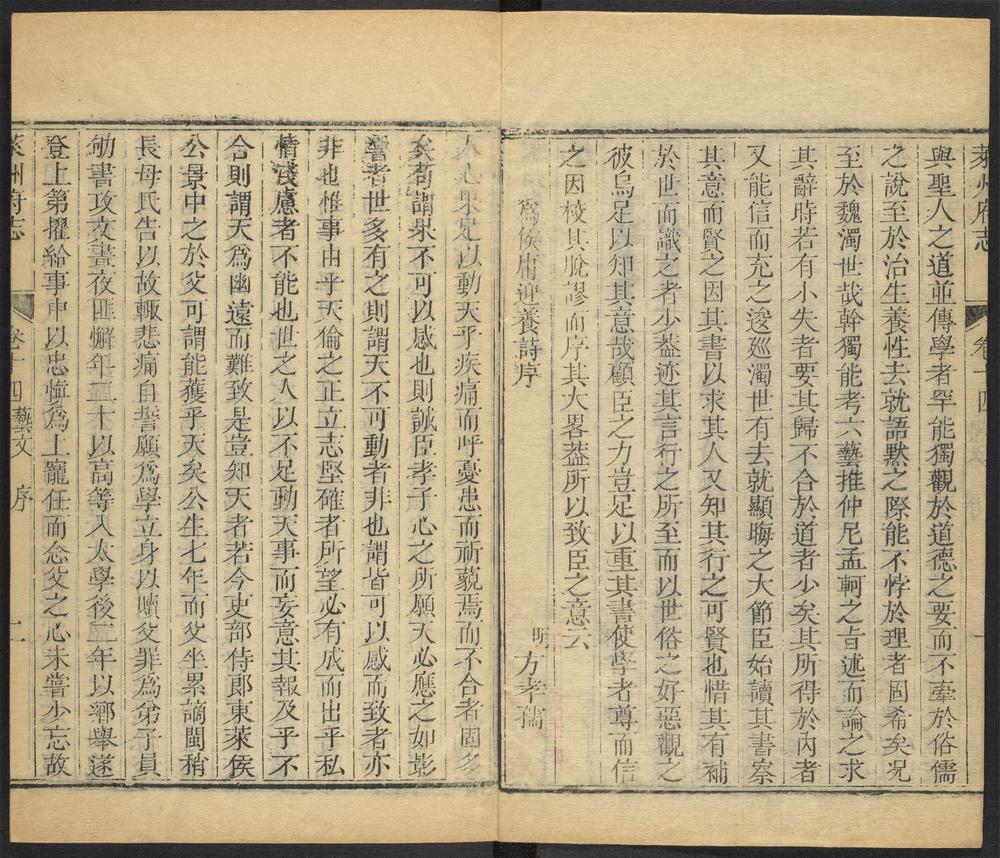 萊州府志 卷十四
與聖人之道並傳學者罕能獨觀於道德之要而不牽於俗儒
之說至於治生養性去就語默之際能不悖於理者固希矣况
至於魏濁世哉幹獨能考六藝推仲尼孟軻之旨述而論之求
其辭時若有小失者要其歸不合於道者少矣其所得於內者
又能信而充之逡廵濁世有去就顯晦之大節臣始讀其書察
其意而賢之因其書以求其人又知其行之可賢也惜其有補
於世而識之者少葢迹其言行之所至而以世俗之好惡觀之
彼烏足以知其意哉顧臣之力豈足以重其書使學者尊而信
之因校其脫謬而序其大畧葢所以致臣之意云
爲侯庸迎養詩序
明方孝孺
人心果足以動天乎疾痛而呼憂患而祈藐焉而不合者固多
矣苟謂果不可以感也則誠臣孝子心之所願天必應之如影
響者世多有之則謂天不可動者非也謂皆可以感而致者亦
非也惟事由乎天倫之正立志堅確者所望必有成而出乎私
情淺慮者不能也世之人以不足動天事而妄意其報及乎不
合則謂天爲幽遠而難致是豈知天者若今吏部侍郎東萊侯
公景中之於父可謂能獲乎天矣公生七年而父坐累謫閩稍
長母氏告以故輒悲痛自誓願爲學立身以贖父罪爲弟子員
劬書攻文晝夜匪懈年二十以高等入太學後三年以鄉舉遂
登上第擢給事中以忠恂爲上寵任而念父之心未嘗少忘故
萊州府志 卷十四藝文 序 二